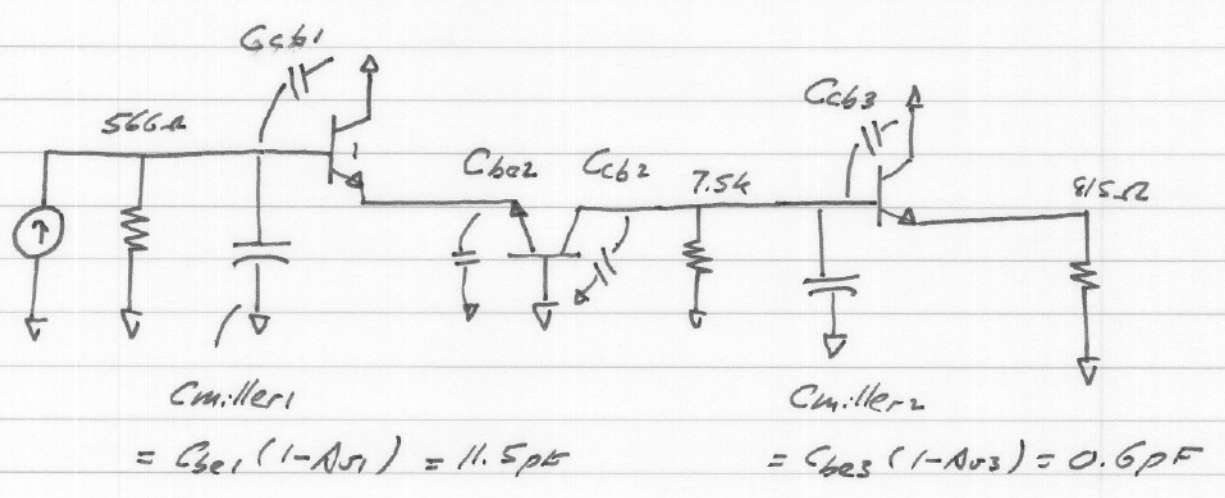 Ccb1
566Ω
1
Cbe2
Ccb2
7.5k
Ccb3
815Ω
Cmiller1
= Cbe1 (1-Av1) = 11.5pF
Cmiller2
= Cbe3 (1-Av3) = 0.6pF